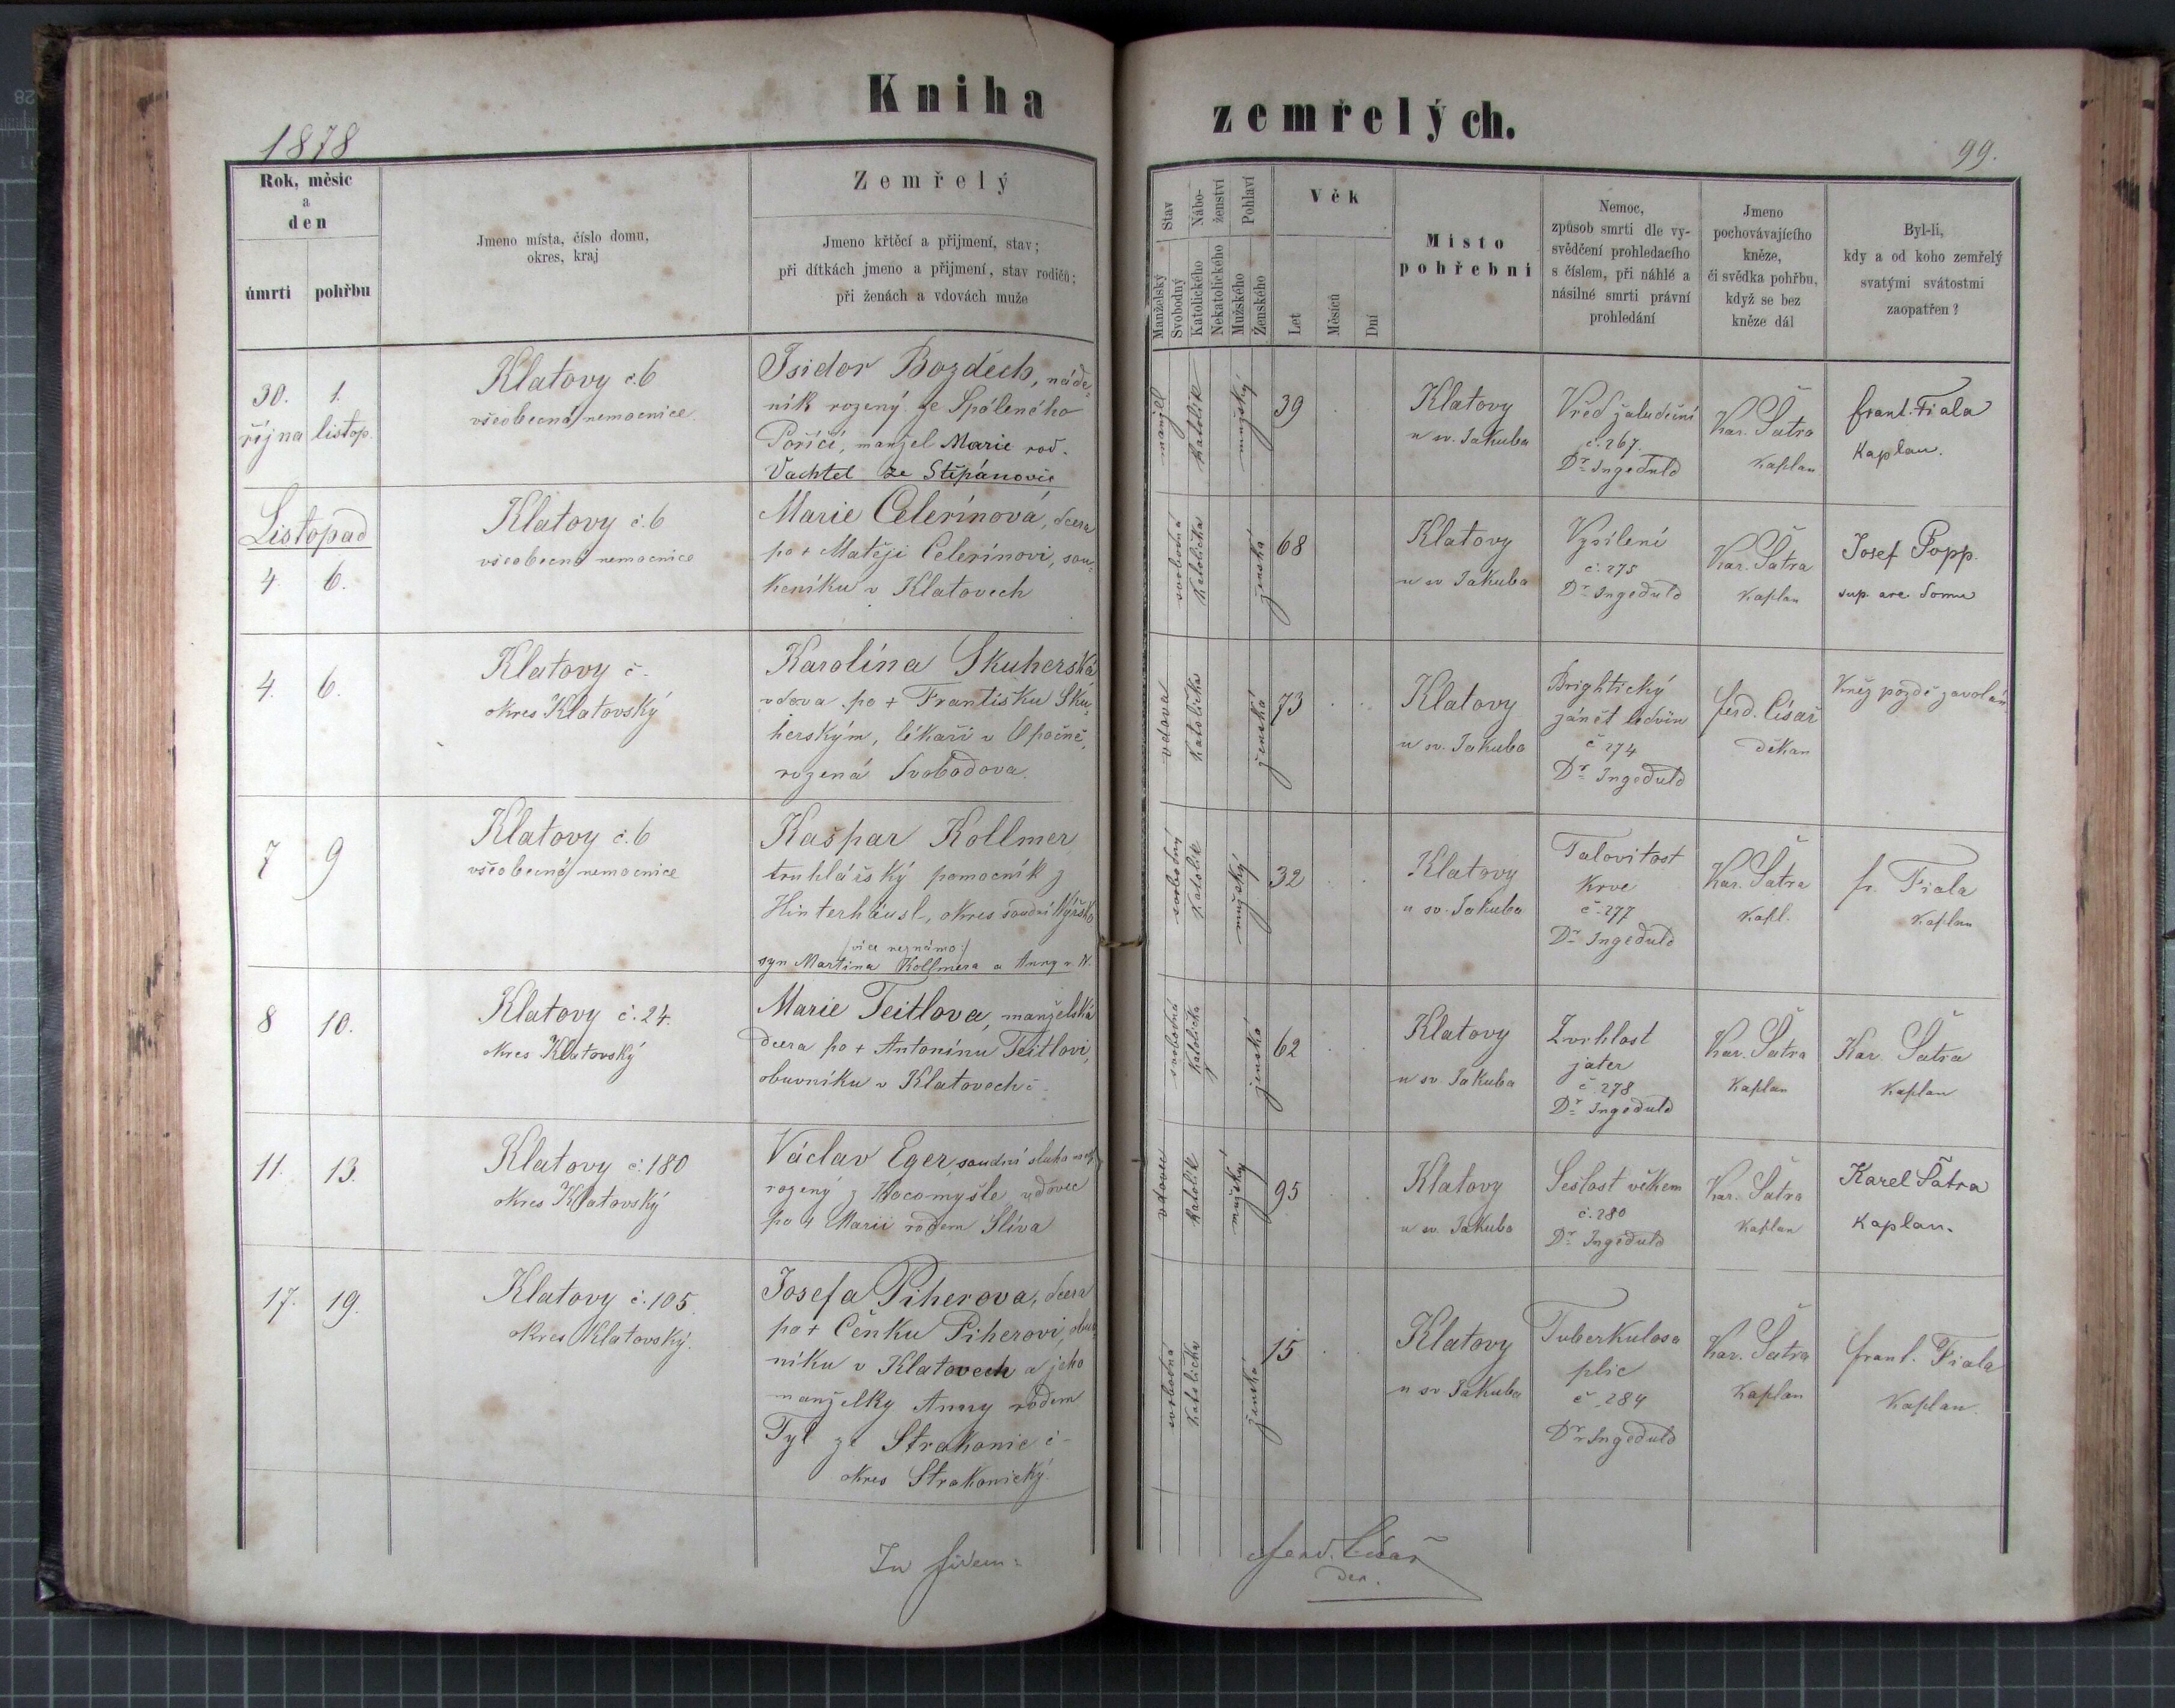 Kniha zemřelých.
1878
99.
Rok, měsíc
a
den
úmrtí
pohřbu
Jmeno místa, číslo domu,
okres, kraj
Zemřelý
Jmeno křtěcí a příjmení, stav;
při dítkách jmeno a příjmení, stav rodičů;
při ženách a vdovách muže
Stav
Manželský
Svobodný
Nábo-
ženství
Katolického
Nekatolického
Pohlaví
Mužského
Ženského
Věk
Let
Měsíců
Dní
Místo
pohřební
Nemoc,
způsob smrti dle vy-
svědčení prohledacího
s číslem, při náhlé a
násilné smrti právní
prohledání
Jmeno
pochovávajícího
kněze,
či svědka pohřbu,
když se bez
kněze dál
Byl-li,
kdy a od koho zemřelý
svatými svátostmi
zaopatřen?
30. října
1. listop.
Klatovy č. 6
všeobecná nemocnice
Isidor Bozděch, náde-
ník rozený ze Spáleného
Poříčí, manžel Marie roz.
Vachtel ze Štěpánovic
manžel
katolík
mužský
39
Klatovy
u sv. Jakuba
Vřed žaludeční
č. 267.
Dr Ingeduld
Kar. Šatra
Kaplan
frant. Fiala
Kaplan.
Listopad
4.
6.
Klatovy č. 6
všeobecná nemocnice
Marie Celerínová, dcera
po + Matěji Celerínovi, sou-
keníku v Klatovech
svobodná
katolička
ženská
68
Klatovy
u sv. Jakuba
Vysílení
č. 275
Dr Ingeduld
Kar. Šatra
Kaplan
Josef Popp.
4.
6.
Klatovy č.
okres Klatovský
Karolína Skuherská
vdova po + Františku Sku-
herským, lékaři v Opočně,
rozená Svobodova.
vdova
katolička
ženská
73
Klatovy
u sv. Jakuba
Brightický
zánět ledvin
č 274
Dr Ingeduld
ferd. Císař
děkan
Kněz pozdě zavolán
7
9
Klatovy č. 6
všeobecná nemocnice
Kašpar Kollmer,
truhlářský pomocník z
Hinterhäusl, okres soudní Nýrsko
/více neznámo:/
syn Martina Kollmera a Anny r. N.
svobodný
katolík
mužský
32
Klatovy
u sv. Jakuba
Talovitost
krve
č. 277
Dr Ingeduld
Kar. Šatra
Kapl.
fr. Fiala
Kaplan
8
10.
Klatovy č. 24.
okres Klatovský
Marie Teitlova, manželská
dcera po + Antonínu Teitlovi,
obuvníku v Klatovech č.
svobodná
katolička
ženská
62
Klatovy
u sv. Jakuba
Zvrhlost
jater
č 278
Dr Ingeduld
Kar. Šatra
Kaplan
Kar. Šatra
Kaplan
11.
13.
Klatovy č. 180
okres Klatovský
Václav Eger, soudní sluha
rozený z Kocomyšle, vdovec
po + Marii rodem Slíva
vdovec
katolík
mužský
95
Klatovy
u sv. Jakuba
Sešlost věkem
č. 280
Dr Ingeduld
Kar. Šatra
Kaplan
Karel Šatra
Kaplan.
17.
19.
Klatovy č. 105.
okres Klatovský.
Josefa Piherova, dcera
po + Čeňku Piherovi, obuv-
níku v Klatovech a jeho
manželky Anny rodem
Tyl ze Strakonic č -
okres Strakonický.
svobodná
katolička
ženská
15
Klatovy
u sv. Jakuba
Tuberkulosa
plic
č. 284
Dr Ingeduld
Kar. Šatra
Kaplan
frant. Fiala
Kaplan.
In fidem:
Ferd. Císař
děk.